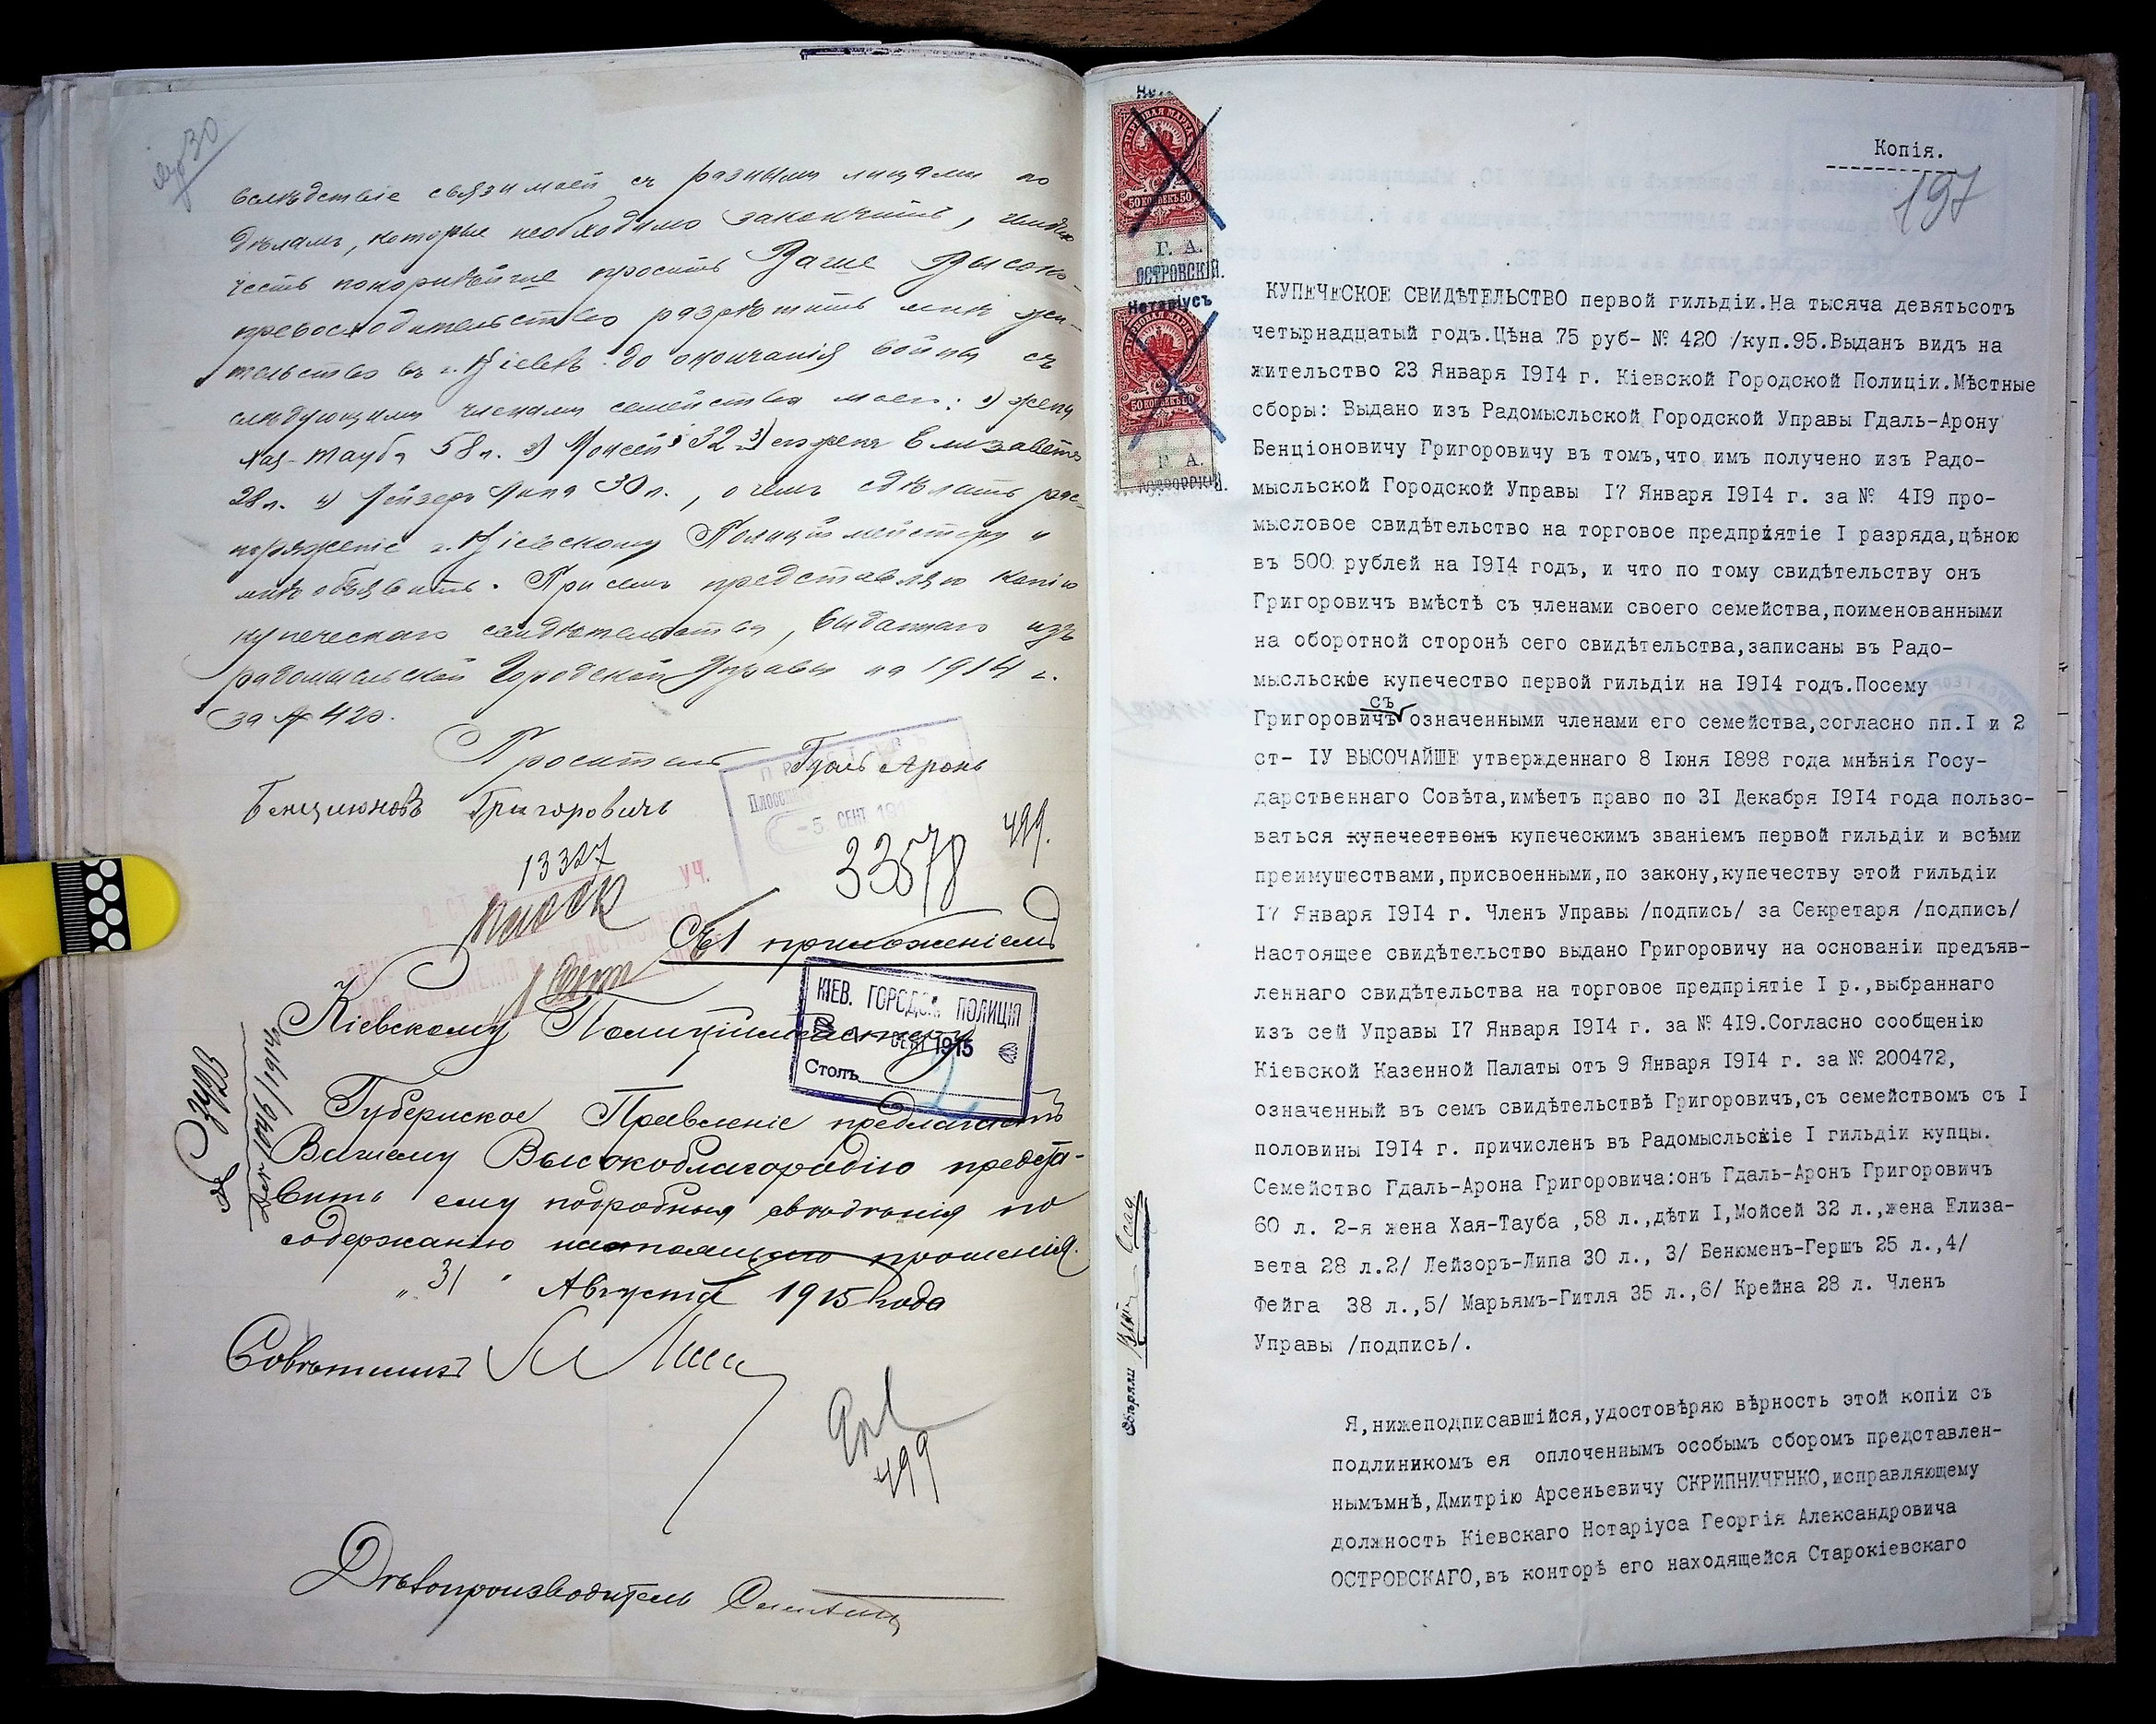 вслѣдствіе связи моей съ разными лицами по
дѣламъ, которые необходимо закончить, имѣю
честь покорнѣйше просить Ваше Высоко-
превосходительство разрѣшить мнѣ жи-
тельство въ г. Кіевѣ до окончанія войны съ
слѣдующими членами семейства моего: 1) жены
Хая-Тауба 58 л. 2) Мойсей 32 3) его жена Елизавета
28 л. 4) Лейзеръ Липа 30 л., о чемъ сдѣлать рас-
поряженіе г. Кіевскому Полиціймейстеру и
мнѣ объявить. При семъ представляю копію
купеческаго свидѣтельства, выданнаго изъ
радомысльской Городской Управы на 1914 г.
за № 420.
Проситель Гдаль Аронъ
Бенціоновъ Григоровичъ
-5 СЕНТ 191
13327
33578
499.
2 СТ. УЧ.
Съ 1 приложеніемъ
КІЕВ. ГОРОДСК. ПОЛИЦІЯ
СЕНТ 1915
Столъ
Кіевскому Полиціймейстеру
Губернское Правленіе предлагаетъ
Вашему Высокоблагородію предста-
вить ему подробныя свѣдѣнія по
содержанію настоящаго прошенія.
„31" Августа 1915 года
Совѣтникъ
499
Дѣлопроизводитель
Копія.
197
50 КОПѢЕКЪ 50
Г. А.
ОСТРОВСКІЙ.
Нотаріусъ
50 КОПѢЕКЪ 50
Г. А.
КУПЕЧЕСКОЕ СВИДѢТЕЛЬСТВО первой гильдіи.На тысяча девятьсотъ
четырнадцатый годъ.Цѣна 75 руб- № 420 /куп.95.Выданъ видъ на
жительство 23 Января 1914 г. Кіевской Городской Полиціи.Мѣстные
сборы: Выдано изъ Радомысльской Городской Управы Гдаль-Арону
Бенціоновичу Григоровичу въ томъ,что имъ получено изъ Радо-
мысльской Городской Управы 17 Января 1914 г. за № 419 про-
мысловое свидѣтельство на торговое предпріятіе I разряда,цѣною
въ 500 рублей на 1914 годъ, и что по тому свидѣтельству онъ
Григоровичъ вмѣстѣ съ членами своего семейства,поименованными
на оборотной сторонѣ сего свидѣтельства,записаны въ Радо-
мысльское купечество первой гильдіи на 1914 годъ.Посему
съ
Григоровичъ означенными членами его семейства,согласно пп.I и 2
ст- IV ВЫСОЧАЙШЕ утвержденнаго 8 Іюня 1898 года мнѣнія Госу-
дарственнаго Совѣта,имѣетъ право по 31 Декабря 1914 года пользо-
ваться купечествомъ купеческимъ званіемъ первой гильдіи и всѣми
преимуществами,присвоенными,по закону,купечеству этой гильдіи
17 Января 1914 г. Членъ Управы /подпись/ за Секретаря /подпись/
Настоящее свидѣтельство выдано Григоровичу на основаніи предъяв-
леннаго свидѣтельства на торговое предпріятіе I р.,выбраннаго
изъ сей Управы 17 Января 1914 г. за № 419.Согласно сообщенію
Кіевской Казенной Палаты отъ 9 Января 1914 г. за № 200472,
означенный въ семъ свидѣтельствѣ Григоровичъ,съ семействомъ съ I
половины 1914 г. причисленъ въ Радомысльскіе I гильдіи купцы.
Семейство Гдаль-Арона Григоровича:онъ Гдаль-Аронъ Григоровичъ
60 л. 2-я жена Хая-Тауба ,58 л.,дѣти I,Мойсей 32 л.,жена Елиза-
вета 28 л.2/ Лейзоръ-Липа 30 л., 3/ Бенюменъ-Гершъ 25 л.,4/
Фейга 38 л.,5/ Марьямъ-Гитля 35 л.,6/ Крейна 28 л. Членъ
Управы /подпись/.
Я,нижеподписавшійся,удостовѣряю вѣрность этой копіи съ
подлиникомъ ея оплоченнымъ особымъ сборомъ представлен-
нымъмнѣ,Дмитрію Арсеньевичу СКРИПНИЧЕНКО,исправляющему
должность Кіевскаго Нотаріуса Георгія Александровича
ОСТРОВСКАГО,въ конторѣ его находящейся Старокіевскаго